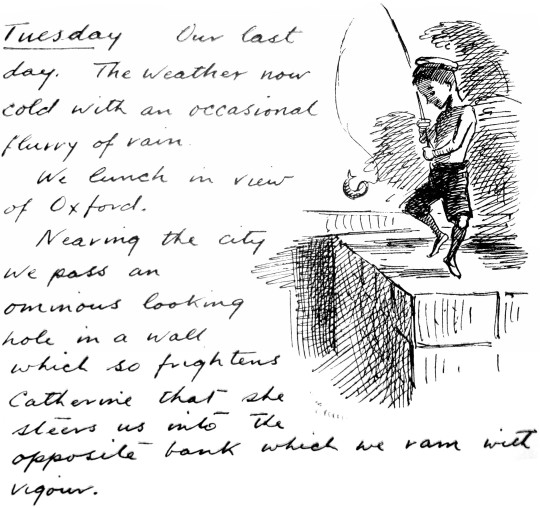 Tuesday Our last
day. The weather now
cold with an occasional
flurry of rain.
We lunch in view
of Oxford.
Nearing the city
we pass an
ominous looking
hole in a wall
which so frightens
Catherine that she
steers us into the
opposite bank which we ram with
vigour.